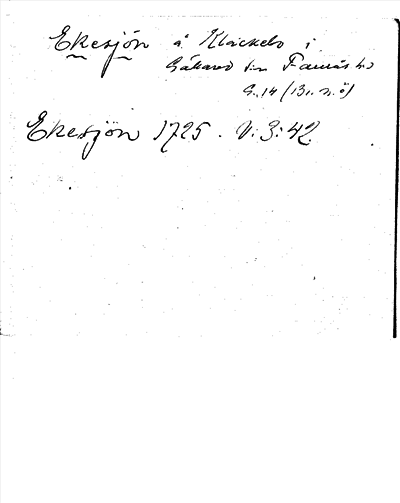 Ekesjön å Kläckebo i
Gällared sn Faurås hd
G. 14 (Bl. n. ö)
Ekesjön 1725. V: 3: 42